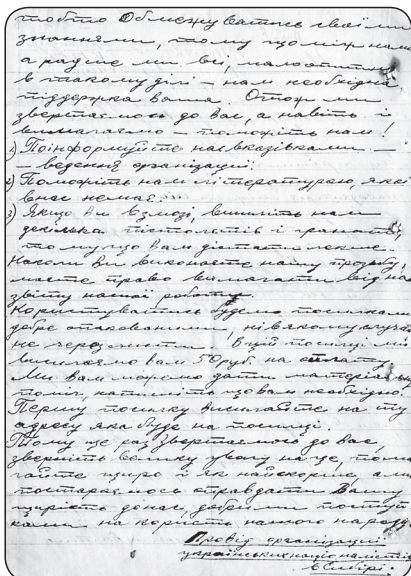 тобто Обмежуватись своїми
знаннями, тому що між нами
а радше ми всі,
в такому ділі – нам необхідна
піддержка ваша. Отож ми
звертаємось до вас, а навіть і
вимагаємо – поможіть нам!
1) Поінформуйте нас вказівками –
– ведення організації.
2) Поможіть нам літературою, якої
в нас немає.
3) Якщо Ви в змозі, вишліть нам
декілька пістолетів і гранат,
тому що Вам дістати легше.
Наколи Ви виконаєте нашу прозьбу,
маєте право вимагати від нас
звіту нашої роботи.
Користуватись будемо посилками
добре опакованими ні в якому случаї
не через пошти. В цій посилці ми
висилаємо вам 50 руб. на оплату.
Ми Вам можемо дати матеріальну
поміч, напишіть що вам необхідно.
Першу посилку висилайте на ту
адресу яка буде на посилці.
Тому ще раз звертаємось до Вас
зверніть велику увагу на це, пома-
гайте щиро і як найскоріше, а ми
постараємось справдати Вашу
щирість до нас, добрими поступ-
ками на користь нашого народу.
Провід організації
українських націоналістів
в Сибірі.